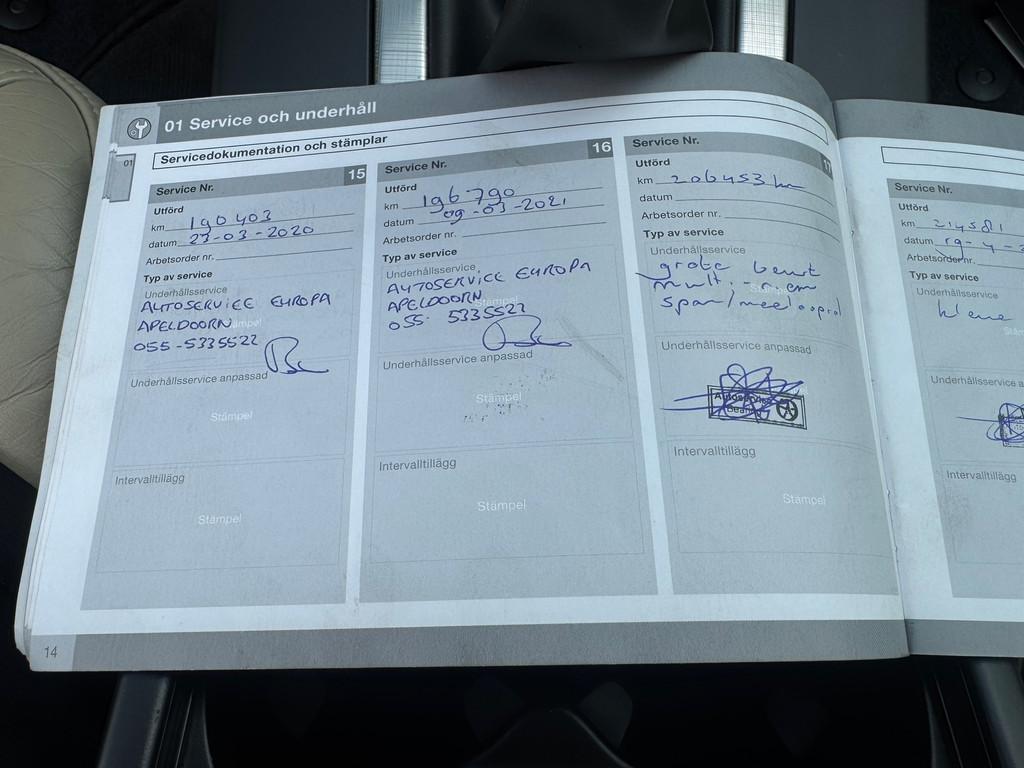 01 Service och underhåll
01
Servicedokumentation och stämplar
Service Nr. 15
Utförd
km 190403
datum 23-03-2020
Arbetsorder nr.
Typ av service
Underhållsservice
AUTOSERVICE EUROPA
APELDOORN
Stämpel
055-5335522
Underhållsservice anpassad
Stämpel
Intervalltillägg
Stämpel
Service Nr. 16
Utförd
km 196790
datum 09-03-2021
Arbetsorder nr.
Typ av service
Underhållsservice
AUTOSERVICE EUROPA
APELDOORN
Stämpel
055-5335522
Underhållsservice anpassad
Stämpel
Intervalltillägg
Stämpel
Service Nr. 17
Utförd
km 206453 km
datum
Arbetsorder nr.
Typ av service
Underhållsservice
grote beurt
mult. riem
Underhållsservice anpassad
Autoservice
Intervalltillägg
Stämpel
Service Nr.
Utförd
km 214581
datum
Arbetsorder
Typ av service
Underhållsservice
Underhållsservice a
Intervalltillägg
14